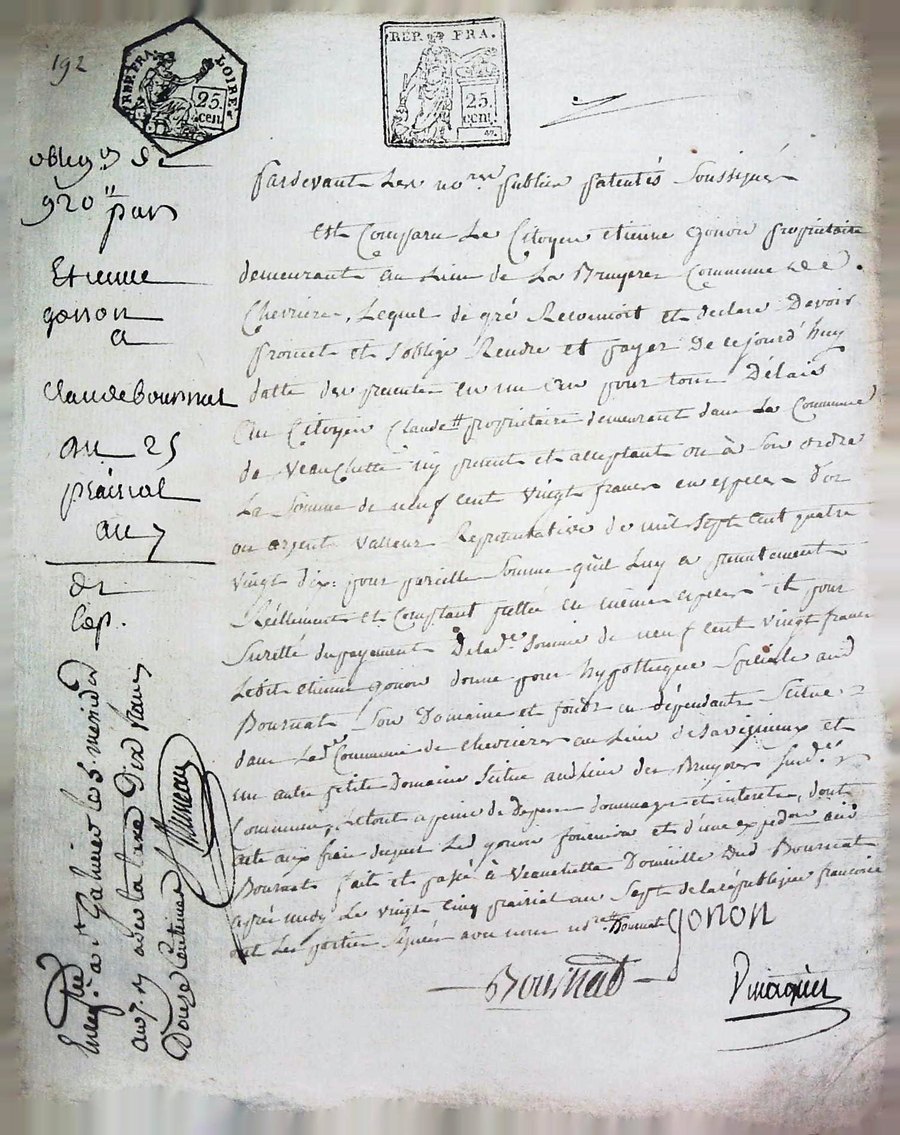 192
REP. FRA. LOIRE.
25.
cen.
REP. FRA.
25.
cent.
oblig.on de
920 ll
par
Etienne
gonon
a
Claude Bournat
du 25
prairial
an 7
Exp.
Enreg.é à St Galmier le 5 messidor
an 7. Reçu dix francs
Douze Centimes
Pardevant Les no.res publics patentés Soussignés
Est Comparu Le Citoyen etienne gonon propriétaire
demeurant au Lieu de La Bruyere Commune de
Chevrieres, Lequel de gré Reconnoit et declare Devoir
promet et S'oblige Rendre et payer De cejourd'huy
datte des presentes en un an pour tout Délais
Au Citoyen Claude # propriétaire demeurant dans La Commune
de Veauchette icy present et acceptant ou à Son ordre
La Somme de neuf cent vingt francs en especes d'or
ou argent Valleur Representative de mil Sept cent quatre
vingt dix: pour pareille Somme qu'il Luy a presentement
Réellement et Comptant prettée en mêmes especes et pour
Suretté du payement De lad.e Somme de neuf cent vingt francs
Ledit etienne gonon donne pour hypotheque Speciale aud
Bournat Son Domaine et fonds en dépendants Scitué
dans Lad.e Commune de Chevrieres au Lieu de et
un autre petit Domaine Scitué aud Lieu des Bruyeres Susd.e
Commune, Letout a peine de Depens dommages et interets, dont
acte aux frais duquel Led gonon fournira et d'une expedon aud
Bournat fait et passé à Veauchette Domicille dud Bournat
après midy Le vingt cinq prairial an Sept de la république francoise
ont Les parties Signés avec nous no.res # Bournat gonon
Bournat